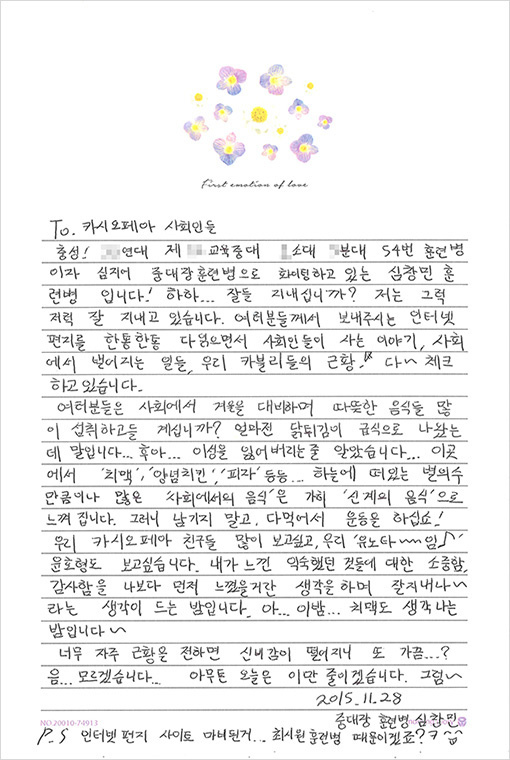 First emotion of love
To. 카시오페아 사회인들
충성! 연대 제 교육중대 소대 분대 54번 훈련병
이자 심지어 중대장훈련병으로 화이팅하고 있는 심창민 훈
련병 입니다! 하하... 잘들 지내십니까? 저는 그럭
저럭 잘 지내고 있습니다. 여러분들께서 보내주시는 인터넷
편지를 한통한통 다읽으면서 사회인들이 사는 이야기, 사회
에서 벌어지는 일들, 우리 카블리들의 근황! 다~ 체크
하고있습니다.
여러분들은 사회에서 겨울을 대비하며 따뜻한 음식들 많
이 섭취하고들 계십니까? 얼마전 닭튀김이 급식으로 나왔는
데 말입니다... 후아... 이성을 잃어버리는줄 알았습니다... 이곳
에서 '치맥', '양념치킨', '피자' 등등... 하늘에 떠있는 별의수
만큼이나 많은 '사회에서의 음식'은 가히 '신계의 음식'으로
느껴집니다. 그러니 남기지 말고, 다먹어서 운동을 하십쇼!
우리 카시오페아 친구들 많이 보고싶고, 우리 '유노타~~임♪'
윤호형도 보고싶습니다. 내가 느낀 익숙했던 것들에 대한 소중함,
감사함을 나보다 먼저 느꼈을거란 생각을 하며 잘지내나~
라는 생각이 드는 밤입니다. 아... 이밤... 치맥도 생각나는
밤입니다~
너무 자주 근황을 전하면 신비감이 떨어지니 또 가끔...?
음... 모르겠습니다... 아무튼 오늘은 이만 줄이겠습니다. 그럼~
2015.11.28
중대장 훈련병 심창민
NO.20010-74913
P.S 인터넷편지 사이트 마비된거... 최시원훈련병 때문이겠죠? ㅋ ^^